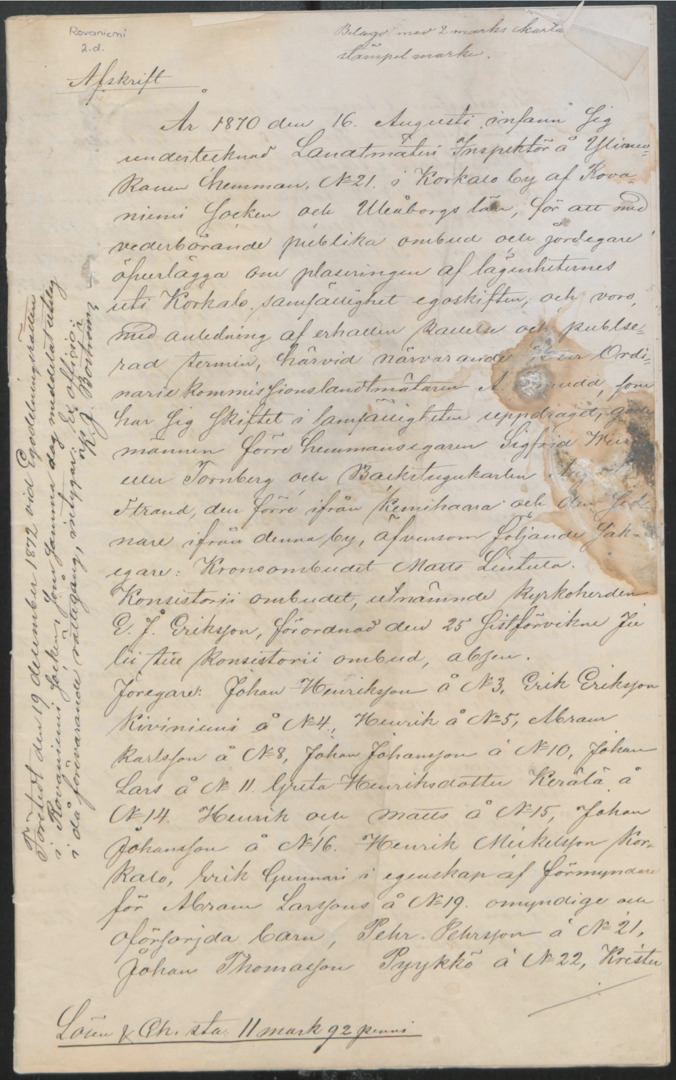 Rovaniemi
2.d.
Belagd med 2 marks charta
stämpel marke.
Afskrift
År 1870 den 16. Augusti infann sig
undertecknad Landtmäteri Inspektör å
hemman, No 21. i Korkalo by af Rova-
niemi Socken och Uleåborgs län, för att med
vederbörande publika ombud och jordegare
öfverlägga om plaseringen af lägenheternes
uti Korkalo samfällighet egoskiften, och voro,
med anledning af erhållen kallelse och publise-
rad termin, härvid närvarande Ordi-
narie kommissionslandtmätaren A. som
har sig skiftet i samfälligheten uppdraget, gode
männen förre hemmansegaren Sigfrid
eller Tornberg och Backstugukarlen
Strand, den förre ifrån Kemihaara och den sed-
nare ifrån denna by, äfvensom följande Sak-
egare: Kronsombudet Matts Lintula.
Konsistorii ombudet, utnämnde kyrkoherden
E. J. Eriksson, förordnad den 25 sistförvikne Ju
lii till Konsistorii ombud, absen.
Joregare: Johan Henriksson å No 3, Erik Eriksson
Kiviniemi å No 4, Henrik å No 5, Abram
Karlsson å No 8, Johan Johansson å No 10, Johan
Lars å No 11. Greta Henriksdotter Kerälä å
No 14. Henrik och Matts å No 15, Johan
Johansson å No 16. Henrik Mickelsson Kor-
kalo, Erik Gunnari i egenskap af förmyndare
för Abram Larssons å No 19. omyndige och
oförsorjda barn, Pehr Pehrsson å No 21,
Johan Thomasson Pyykkö å No 22, Krister
Lösen & Ch. sta: 11 mark 92 penni
Företedt den 19 december 1872 vid Egodelningsrätten
i Rovaniemi Socken, som samma dag meddelat utslag
i då förevarande rättegång, intygar. Ex officio:
K. J. Boström